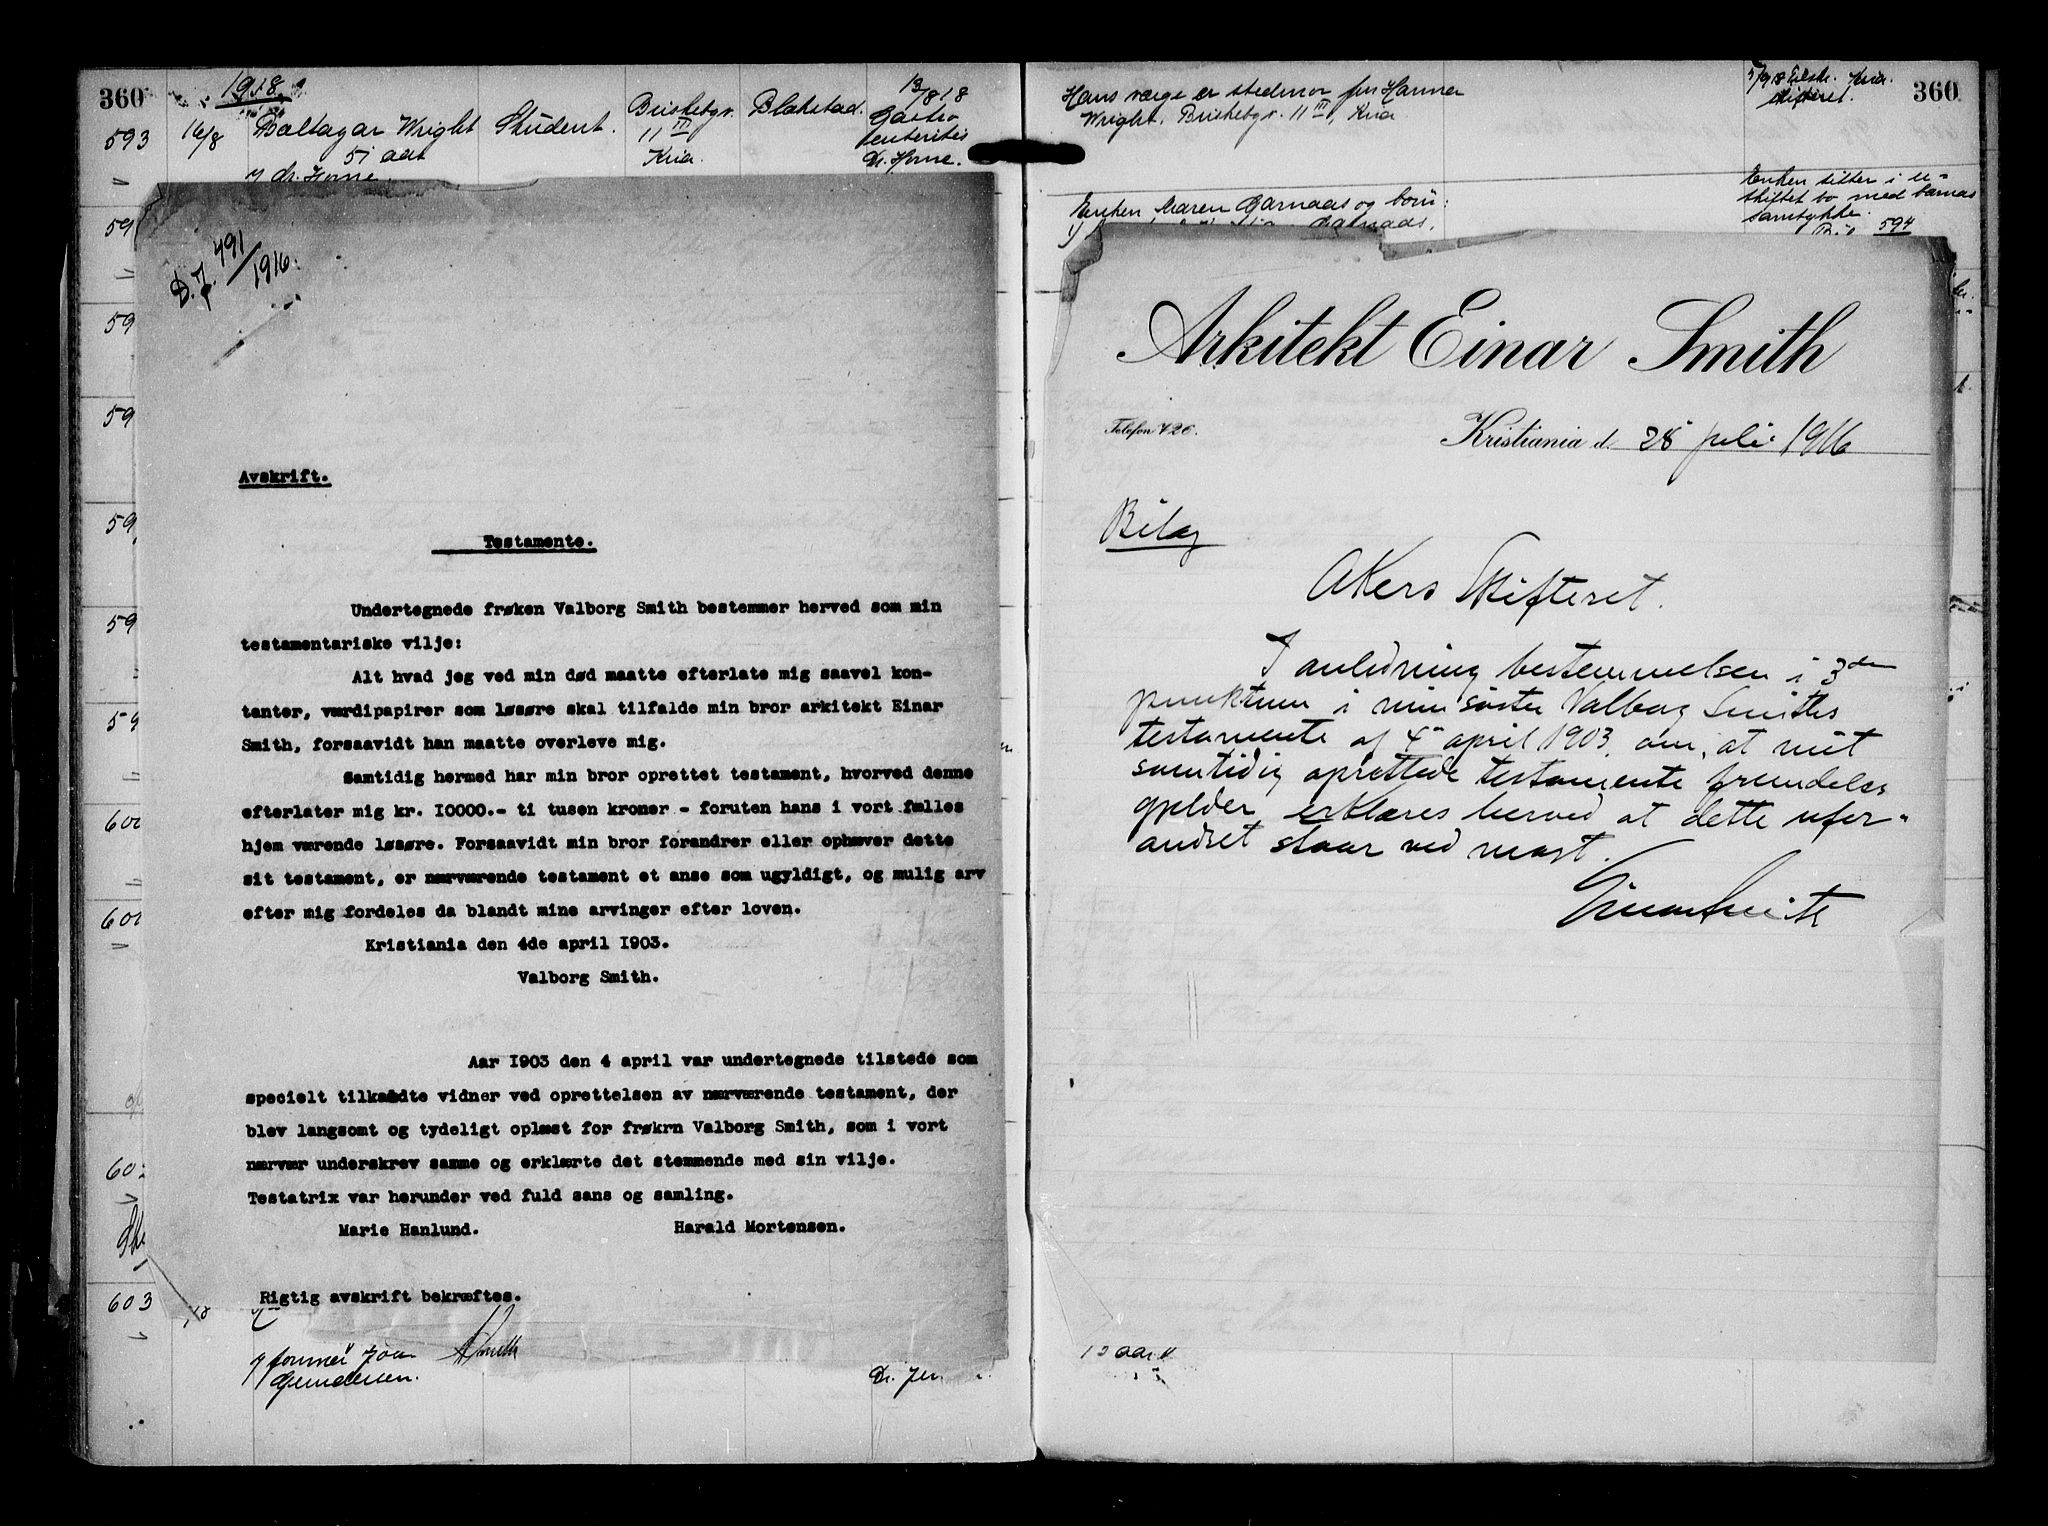 360
1918
593
16/8
Baltazar Wright
51 aar
Student.
Briskebygv.
11 III
Kria.
Blakstad.
13/8 18
Gastro
enteritis
Dr. Horne.
" dr. Horne.
59
59
59
59
59
59
600
600
60
603
D.J. 491/1916.
Avskrift.
Testamente.
Undertegnede frøken Valborg Smith bestemmer herved som min
testamentariske vilje:
Alt hvad jeg ved min død maatte efterlate mig saavel kon-
tanter, værdipapirer som løsøre skal tilfalde min bror arkitekt Einar
Smith, forsaavidt han maatte overleve mig.
Samtidig hermed har min bror oprettet testament, hvorved denne
efterlater mig kr. 10000.- ti tusen kroner - foruten hans i vort fælles
hjem værende løsøre. Forsaavidt min bror forandrer eller ophæver dette
sit testament, er nærværende testament et anse som ugyldigt, og mulig arv
efter mig fordeles da blandt mine arvinger efter loven.
Kristiania den 4de april 1903.
Valborg Smith.
Aar 1903 den 4 april var undertegnede tilstede som
specielt tilkaldte vidner ved oprettelsen av nærværende testament, der
blev langsomt og tydeligt oplæst for frøkrn Valborg Smith, som i vort
nærvær underskrev samme og erklærte det stemmende med sin vilje.
Testatrix var herunder ved fuld sans og samling.
Marie Hanlund. Harald Mortensen.
Rigtig avskrift bekræftes.
Gundersen.
360
Hans værge er stedmor fru Hanna
Wright, Briskebygv. 11 III, Kria
5/9 18 Eilstr. Kria.
skifteret.
Enken Maren Garnaas og børn:
Garnaas.
Enken sitter i u-
skiftet bo med barnas
samtykke.
594
Arkitekt Einar Smith
Telefon 426.
Kristiania d. 28 juli 1916
Bilag
Akers Skifteret.
I anledning bestemmelsen i 3den
punktum i min søster Valborg Smiths
testamente af 4de april 1903, om, at mit
samtidig oprettede testamente fremdeles
gjelder, erklæres herved at dette ufor-
andret staar ved magt.
Einar Smith